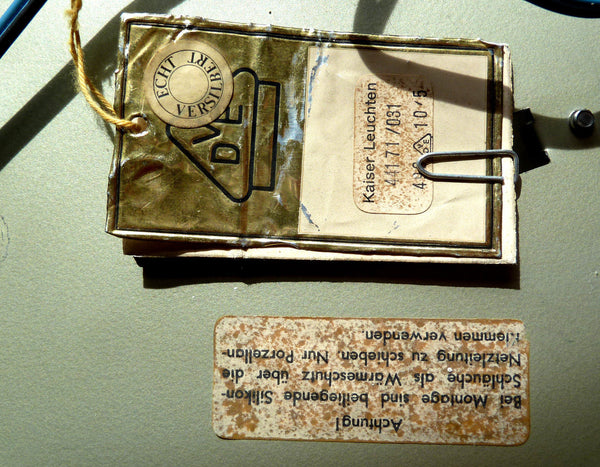 ECHT
VERSILBERT
VDE
Kaiser Leuchten
441 71 /031
Achtung!
Bei Montage sind beiliegende Silikon-
Schläuche als Wärmeschutz über die
Netzleitung zu schieben. Nur Porzellan-
klemmen verwenden.